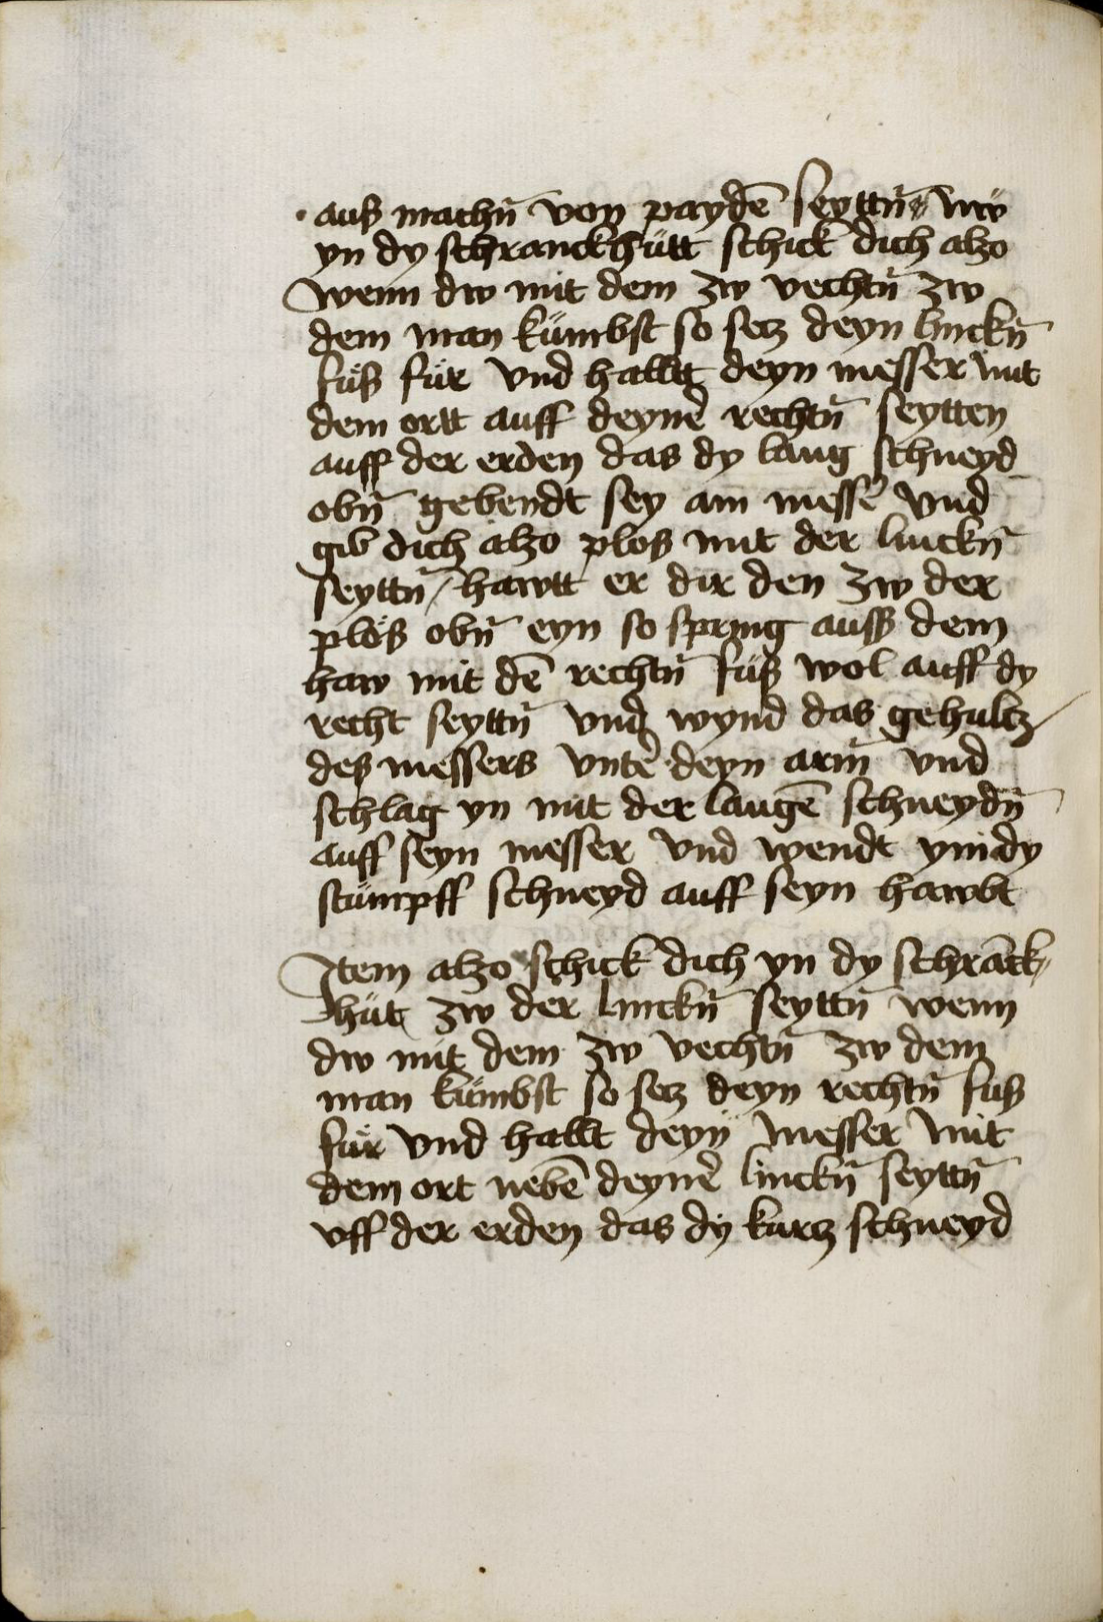 aus machn̄ von paydē seyttn̄ wie
yn dy schranckhütt schick dich alzo
wenn dw mit dem zw vechtn̄ zw
dem man kümbst so secz deyn linckn̄
füß für vnd halltt deyn messer mit
dem ortt auff deynē rechtn̄ seytten
auff der erden das dy lang schneyd
obn̄ gebendt sey am messē vnd
gib dich alzo plos mit der linckn̄
seyttn̄ / hawtt er dir den zw der
plöß obn̄ eyn so spring auss dem
haw mit dē rechtn̄ füß wol auff dy
recht seyttn̄ vnd wynd das gehultz
des messers vntē deyn arm̄ vnd
schlag yn mit der langē schneydn̄
auff seyn messer vnd wendt ym dy
stümpff schneyd auff seyn hawbt
Item alzo schick dich yn dy schrāck
hüt zw der linckn̄ seyttn̄ wenn
dw mit dem zw vechtn̄ zw dem
man kümbst so secz deyn rechtn̄ fus
für vnd hallt deyn messer mit
dem ort nebē deynē linckn̄ seyttn̄
vff der erden das dy kurcz schneyd